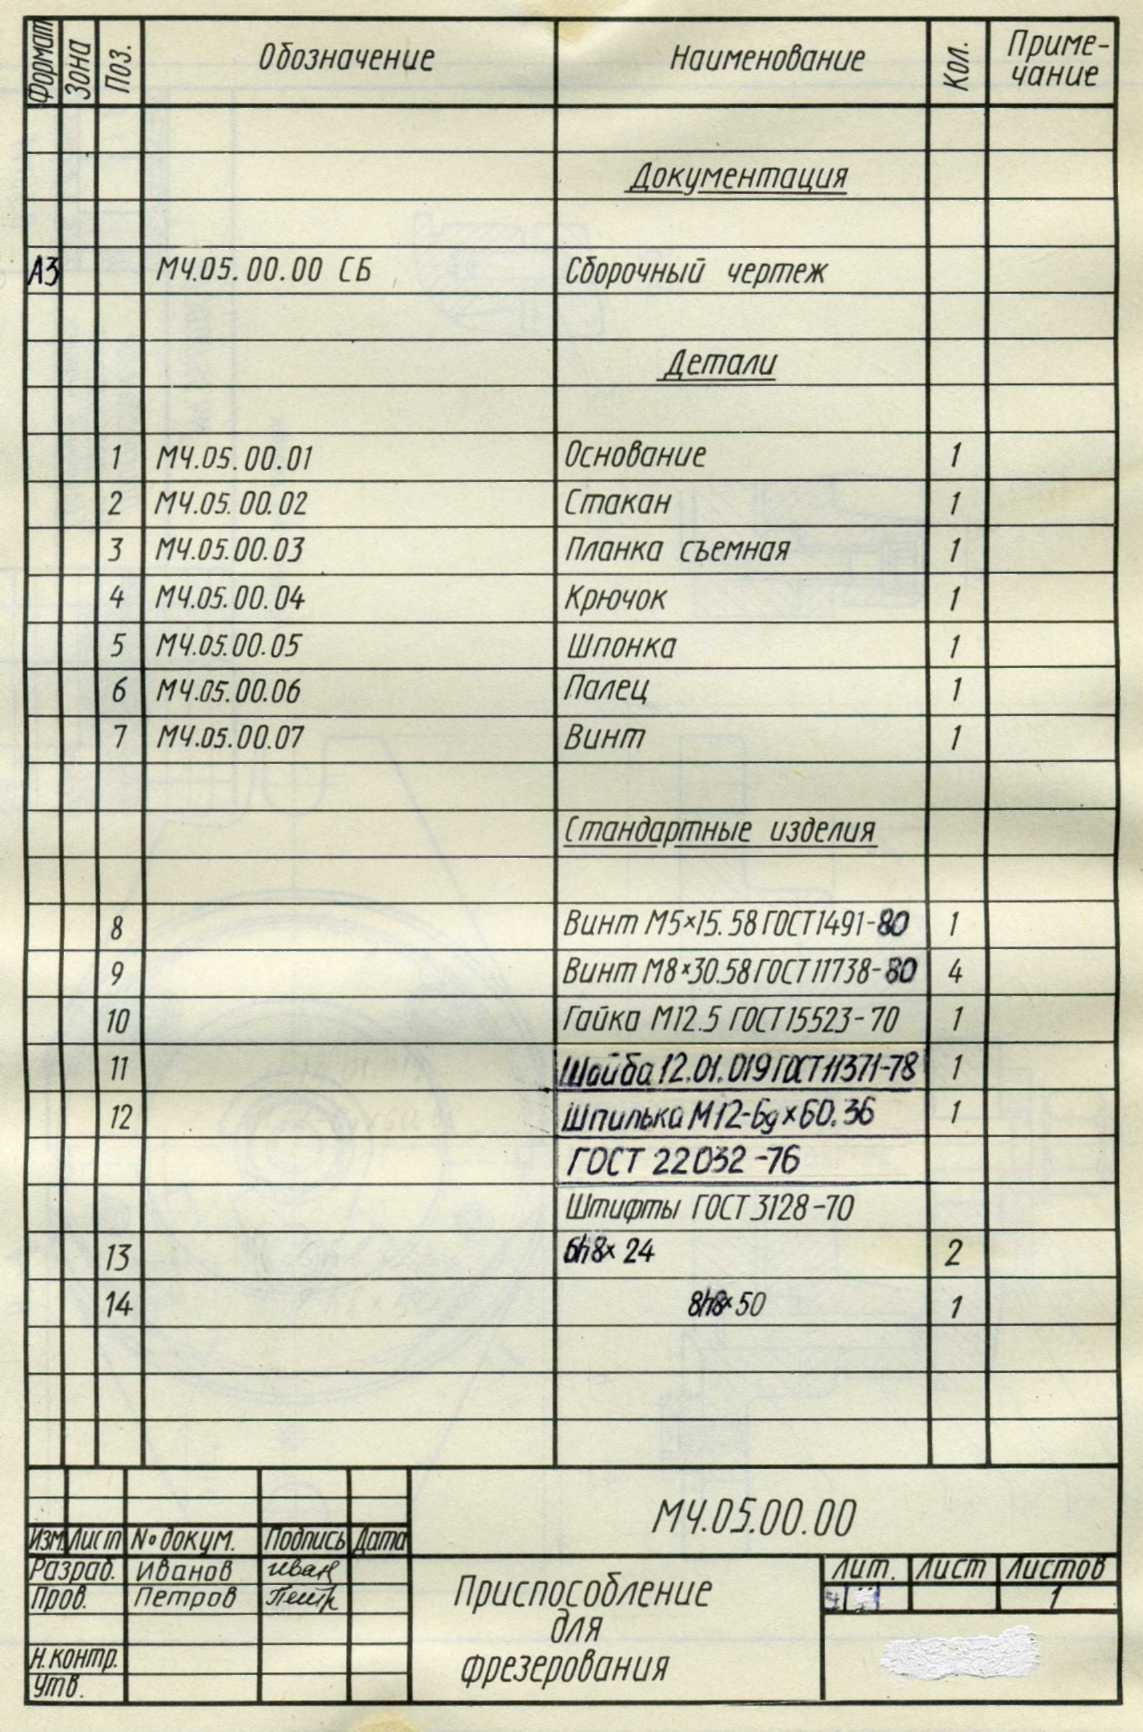 Формат Зона Поз. Обозначение Наименование Кол. Приме-
чание
Документация
А3 МЧ.05.00.00 СБ Сборочный чертеж
Детали
1 МЧ.05.00.01 Основание 1
2 МЧ.05.00.02 Стакан 1
3 МЧ.05.00.03 Планка съемная 1
4 МЧ.05.00.04 Крючок 1
5 МЧ.05.00.05 Шпонка 1
6 МЧ.05.00.06 Палец 1
7 МЧ.05.00.07 Винт 1
Стандартные изделия
8 Винт М5×15.58 ГОСТ 1491-80 1
9 Винт М8×30.58 ГОСТ 11738-80 4
10 Гайка М12.5 ГОСТ 15523-70 1
11 Шайба 12.01.019 ГОСТ 11371-78 1
12 Шпилька М12-6g×60.36 1
ГОСТ 22032-76
Штифты ГОСТ 3128-70
13 6h8×24 2
14 8h8×50 1
МЧ.05.00.00
Изм. Лист № докум. Подпись Дата
Разраб. Иванов Иван
Пров. Петров Петр
Н.контр.
Утв.
Приспособление
для
фрезерования
Лит. Лист Листов
1